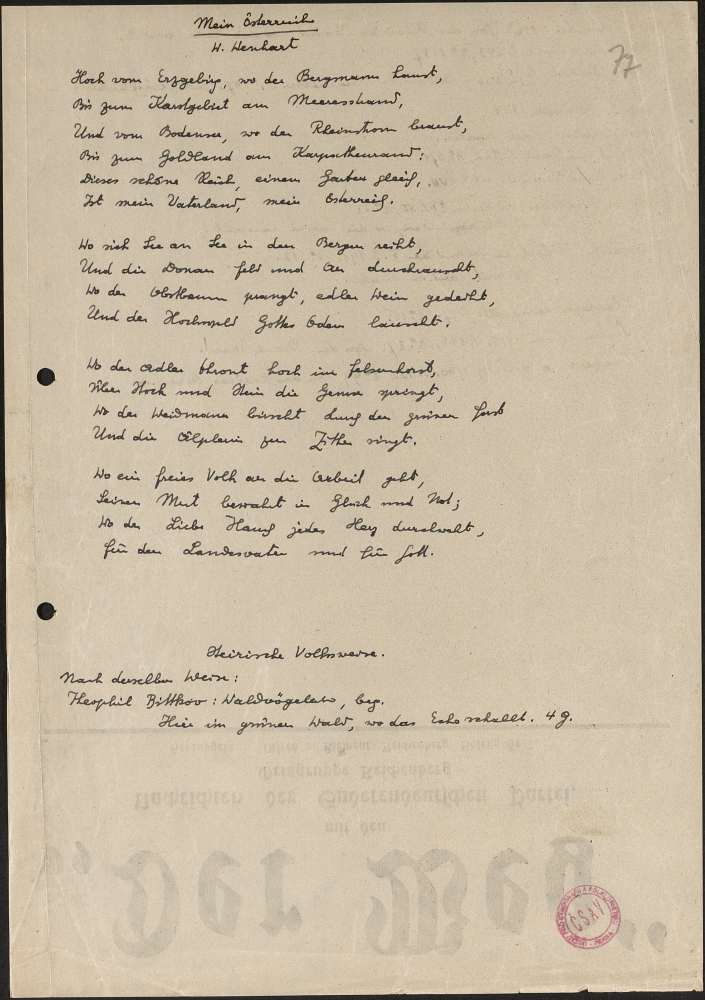 Mein Österreich
W. Wenhart
77
Hoch vom Erzgebirg, wo der Bergmann haust,
Bis zum Karstgebiet am Meeresstrand,
Und vom Bodensee, wo der Rheinstrom braust,
Bis zum Goldland am Karpathenrand:
Dieses schöne Reich, einem Garten gleich,
Ist mein Vaterland, mein Österreich.
Wo sich See an See in den Bergen reiht,
Und die Donau Feld und Au durchrauscht,
Wo der Obstbaum prangt, edler Wein gedeiht,
Und der Hochwald Gottes Odem lauscht.
Wo der Adler thront hoch im Felsenhorst,
Über Stock und Stein die Gemse springt,
Wo der Weidmann birscht durch den grünen Forst
Und die Älplerin zur Zither singt.
Wo ein freies Volk an die Arbeit geht,
Seinen Mut bewahrt in Glück und Not;
Wo der Liebe Hauch jedes Herz durchweht,
Für den Landesvater und für Gott.
Steirische Volksweise.
Nach derselben Weise:
Theophil Bittkov: Waldvögelein, beg.
Hier im grünen Wald, wo das Echo schallt. 4 g.
Ortsgruppe Reichenberg
Nachrichten der Sudetendeutschen Partei,
mit den
„Der Weg"
ČSAV